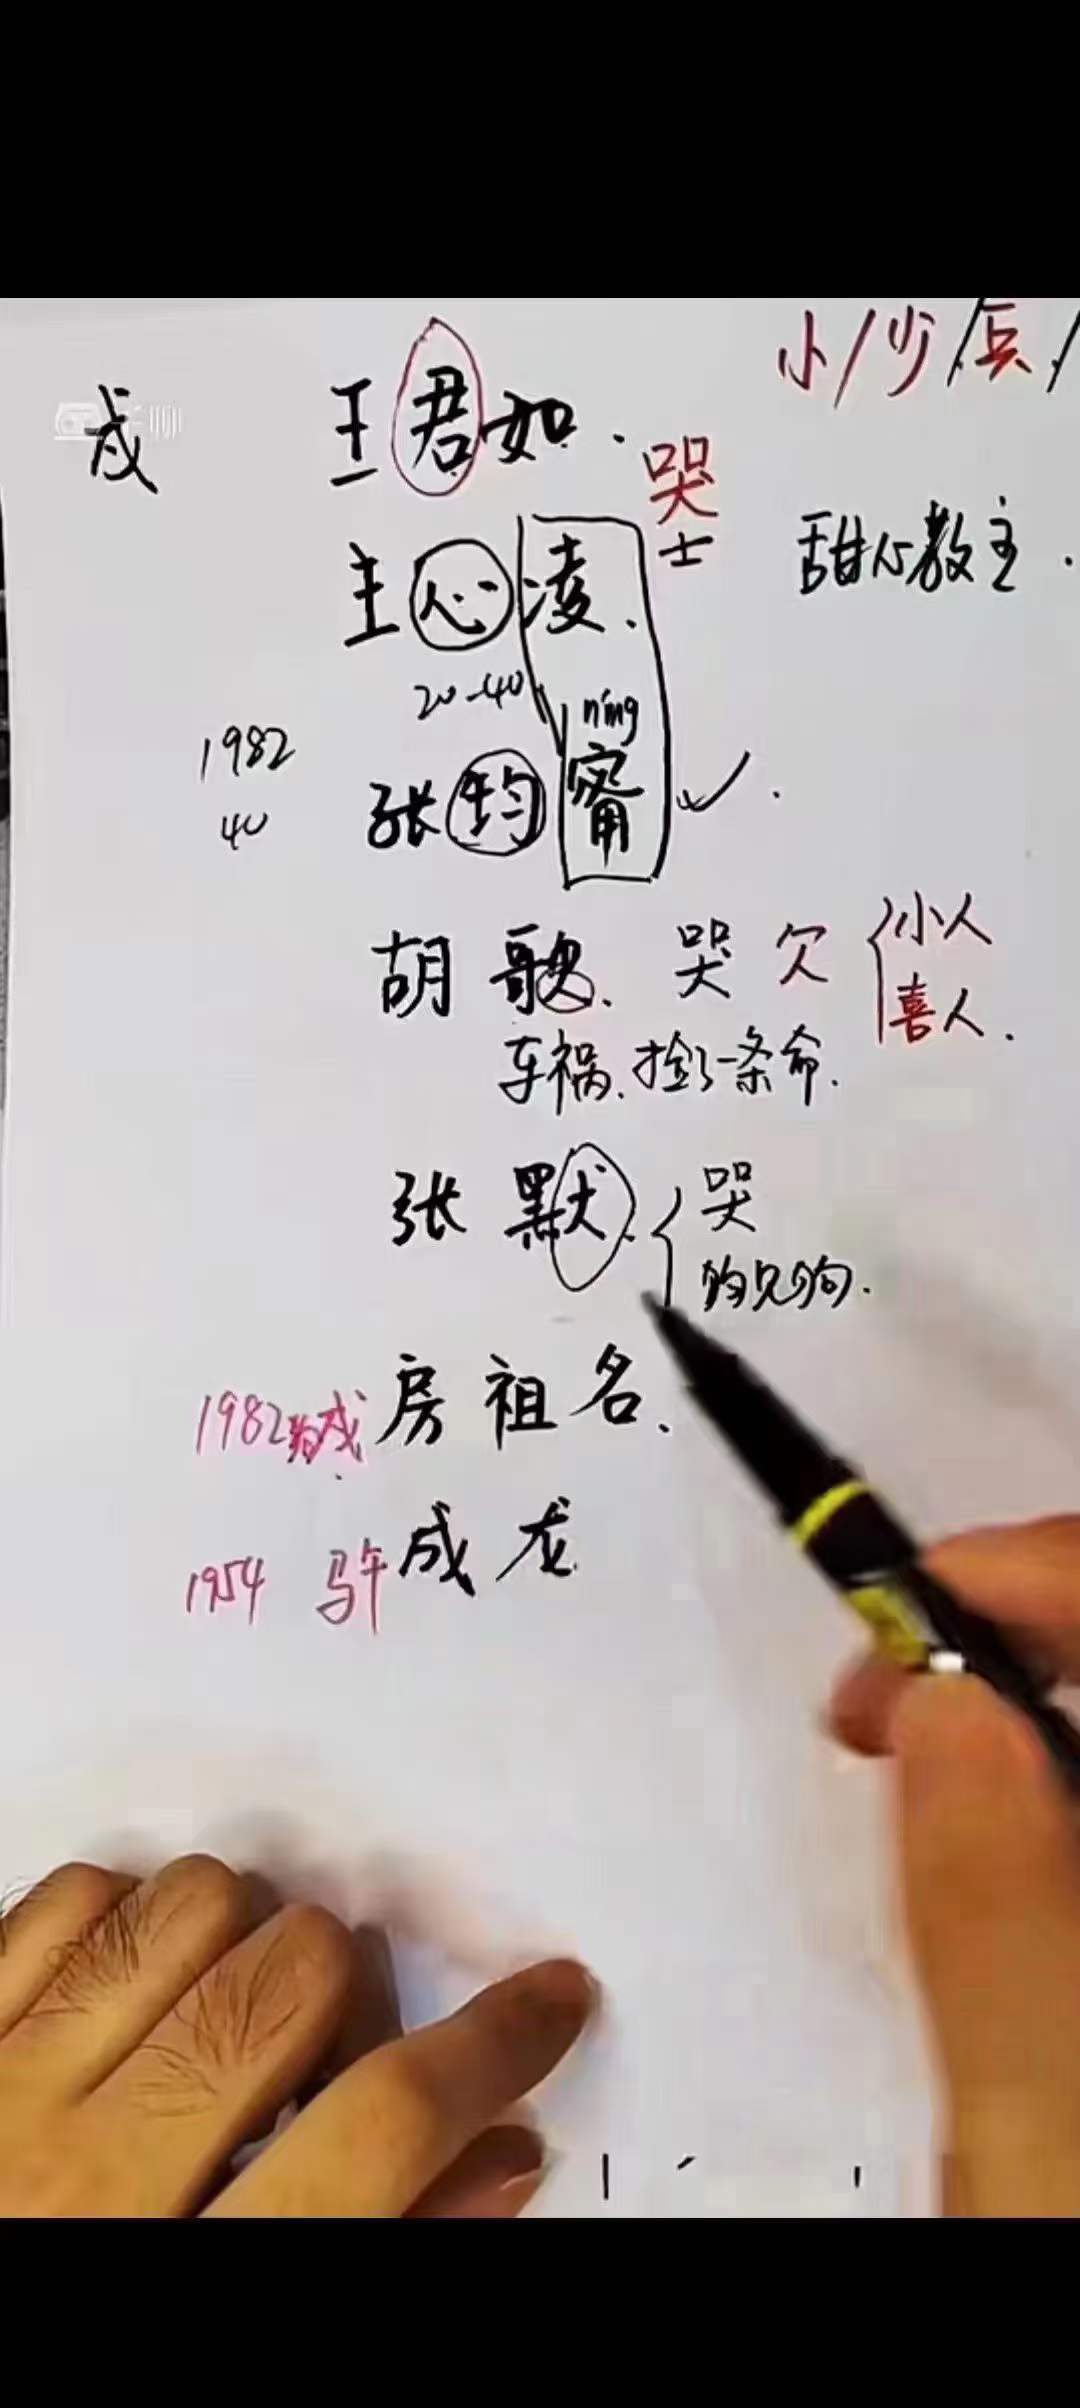 小/少/兵/
戌 王君如.
哭
士
王心凌. 甜心教主.
20-40
1982 ning
40 张钧甯 ✓.
胡歌. 哭 欠 {小人
喜人.
车祸. 捡了一条命.
张默. {哭
狗见狗.
1982 狗戌 房祖名.
1954 马午 成龙